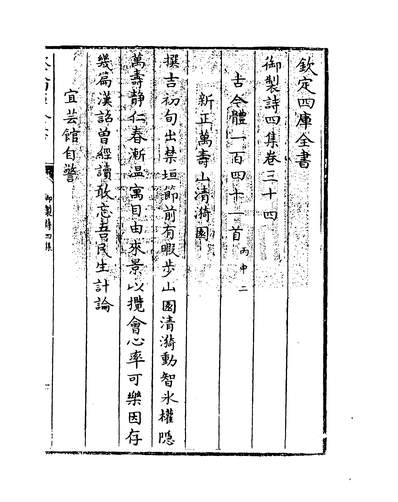 欽定四庫全書
御製詩四集卷三十四
古今體一百四十一首丙申二
新正萬壽山清漪園
撰吉初旬出禁垣節前有暇步山園清漪動智氷權隱
萬壽静仁春漸温寓目由來景以攬會心率可樂因存
幾篇漢詔曾經讀敢忘吾民生計論
宜芸館自警
御製詩四集